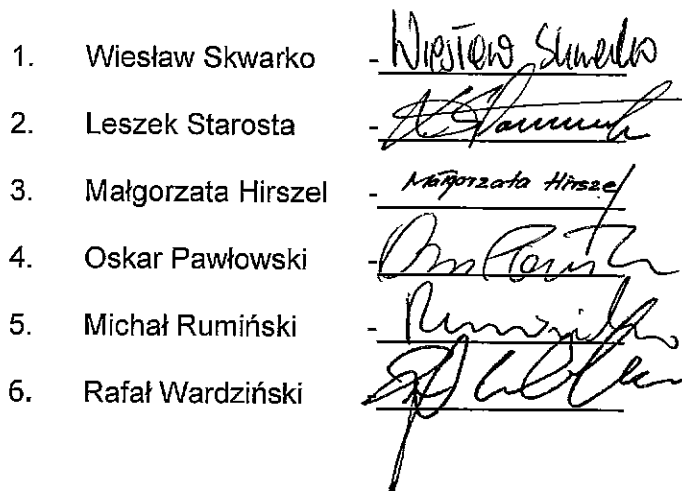 1. Wiesław Skwarko - Wiesław Skwarko
2. Leszek Starosta -
3. Małgorzata Hirszel - Małgorzata Hirszel
4. Oskar Pawłowski -
5. Michał Rumiński -
6. Rafał Wardziński